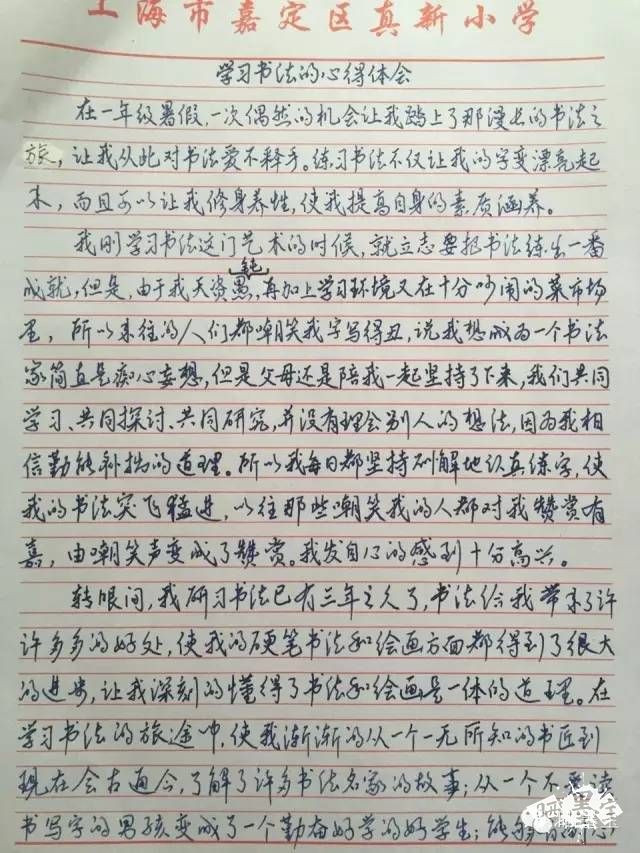 上海市嘉定区真新小学
学习书法的心得体会
在一年级暑假,一次偶然的机会让我踏上了那漫长的书法之
旅,让我从此对书法爱不释手。练习书法不仅让我的字变漂亮起
来,而且可以让我修身养性,使我提高自身的素质涵养。
我刚学习书法这门艺术的时候,就立志要把书法练出一番
成就,但是,由于我天资愚钝,再加上学习环境又在十分吵闹的菜市场
里,所以来往的人们都嘲笑我字写得丑,说我想成为一个书法
家简直是痴心妄想,但是父母还是陪我一起坚持了下来,我们共同
学习、共同探讨、共同研究,并没有理会别人的想法,因为我相
信勤能补拙的道理。所以我每日都坚持不懈地认真练字,使
我的书法突飞猛进,以往那些嘲笑我的人都对我赞赏有
嘉,由嘲笑声变成了赞赏。我发自心的感到十分高兴。
转眼间,我研习书法已有三年之久了,书法给我带来了许
许多多的好处,使我的硬笔书法和绘画方面都得到了很大
的进步,让我深刻的懂得了书法和绘画是一体的道理。在
学习书法的旅途中,使我渐渐的从一个一无所知的书匠到
现在会古通今,了解了许多书法名家的故事;从一个不爱读
书写字的男孩变成了一个勤奋好学的好学生;能够